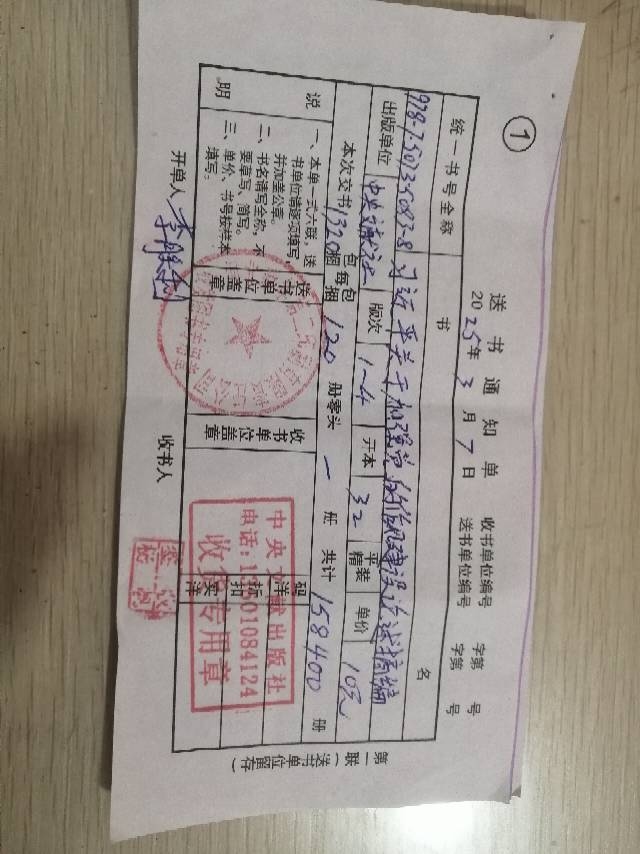 ①
送书通知单
2025年3月7日
收书单位编号 字第 号
送书单位编号 字第 号
统一书号全称 书 名
978-7-5073-5083-8 习近平关于加强党的作风建设论述摘编
出版单位 中央文献 版次 1-4 开本 32 平装 精装 单价 10元
本次交书 1320 包 捆 每包 捆 120 册零头 一 册 共计 158400 册
说明
一、本单一式六联，送书单位请逐项填写，并加盖公章。
二、书名请写全称，不要草写、简写。
三、单价、书号按样本填写。
送书单位盖章
收书单位盖章
码洋
折扣
实洋
中央文献出版社
收货专用章
开单人
收书人
第一联（送书单位留存）